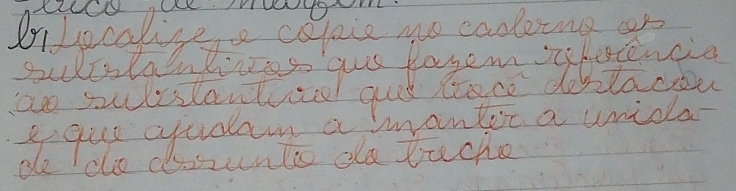 b) Localize e copie no caderno os
substantivos que fazem referência
ao substantivo que você destacou
e que ajudam a manter a unida-
de do assunto do trecho